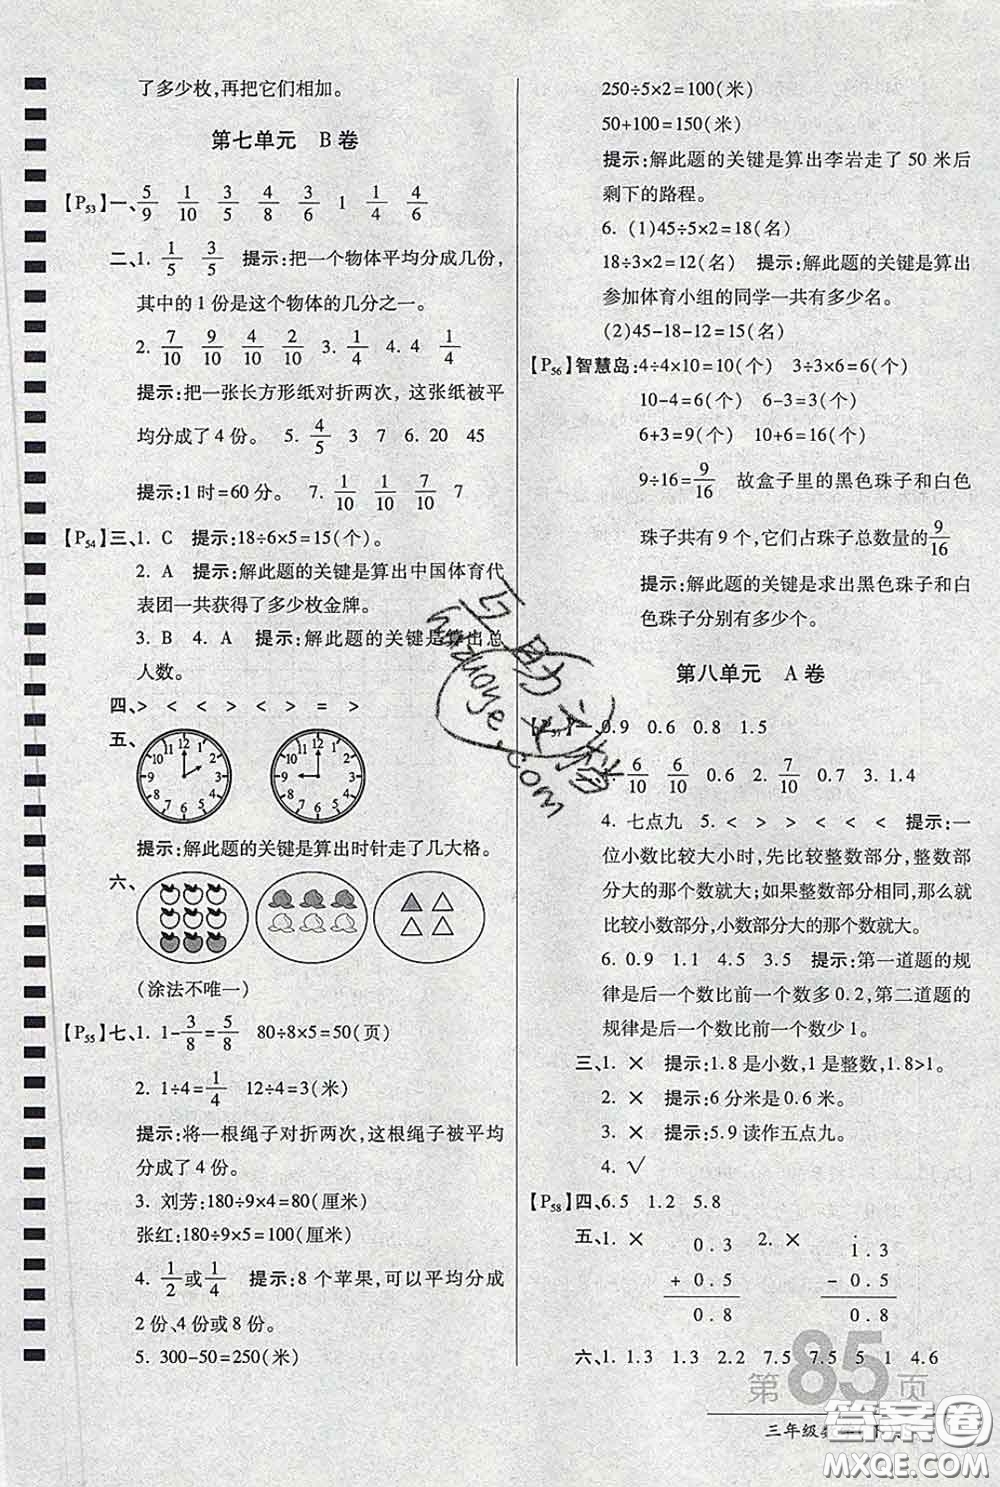 了多少枚,再把它们相加。
第七单元 B卷
【P53】一、5/9 1/10 3/5 4/8 3/6 1 1/4 4/6
二、1. 1/5 3/5 提示:把一个物体平均分成几份,
其中的1份是这个物体的几分之一。
2. 7/10 9/10 4/10 2/10 3. 1/4 4. 4 1/4
提示:把一张长方形纸对折两次,这张纸被平
均分成了4份。 5. 4/5 3 7 6. 20 45
提示:1时=60分。 7. 1/10 1/10 1/10 7
【P54】三、1. C 提示:18÷6×5=15(个)。
2. A 提示:解此题的关键是算出中国体育代
表团一共获得了多少枚金牌。
3. B 4. A 提示:解此题的关键是算出总
人数。
四、> < < > < > = >
五、
11 12 1 10 2 9 3 8 4 7 6 5
11 12 1 10 2 9 3 8 4 7 6 5
提示:解此题的关键是算出时针走了几大格。
六、
(涂法不唯一)
【P55】七、1. 1-3/8=5/8 80÷8×5=50(页)
2. 1÷4=1/4 12÷4=3(米)
提示:将一根绳子对折两次,这根绳子被平均
分成了4份。
3. 刘芳:180÷9×4=80(厘米)
张红:180÷9×5=100(厘米)
4. 1/2或1/4 提示:8个苹果,可以平均分成
2份、4份或8份。
5. 300-50=250(米)
250÷5×2=100(米)
50+100=150(米)
提示:解此题的关键是算出李岩走了50米后
剩下的路程。
6. (1)45÷5×2=18(名)
18÷3×2=12(名) 提示:解此题的关键是算出
参加体育小组的同学一共有多少名。
(2)45-18-12=15(名)
【P56】智慧岛:4÷4×10=10(个) 3÷3×6=6(个)
10-4=6(个) 6-3=3(个)
6+3=9(个) 10+6=16(个)
9÷16=9/16 故盒子里的黑色珠子和白色
珠子共有9个,它们占珠子总数量的9/16
提示:解此题的关键是求出黑色珠子和白
色珠子分别有多少个。
第八单元 A卷
0.9 0.6 0.8 1.5
6/10 6/10 0.6 2. 7/10 0.7 3. 1.4
4. 七点九 5. < > > < < < 提示:一
位小数比较大小时,先比较整数部分,整数部
分大的那个数就大;如果整数部分相同,那么就
比较小数部分,小数部分大的那个数就大。
6. 0.9 1.1 4.5 3.5 提示:第一道题的规
律是后一个数比前一个数多0.2,第二道题的
规律是后一个数比前一个数少1。
三、1. × 提示:1.8是小数,1是整数,1.8>1。
2. × 提示:6分米是0.6米。
3. × 提示:5.9读作五点九。
4. √
【P58】四、6.5 1.2 5.8
五、1. × 2. ×
0.3 1.3
+ 0.5 - 0.5
0.8 0.8
六、1. 1.3 1.3 2.2 7.5 7.5 5 1 4.6
第85页
三年级数
互助文档
huzuoye.com
答案圈
MXQE.COM